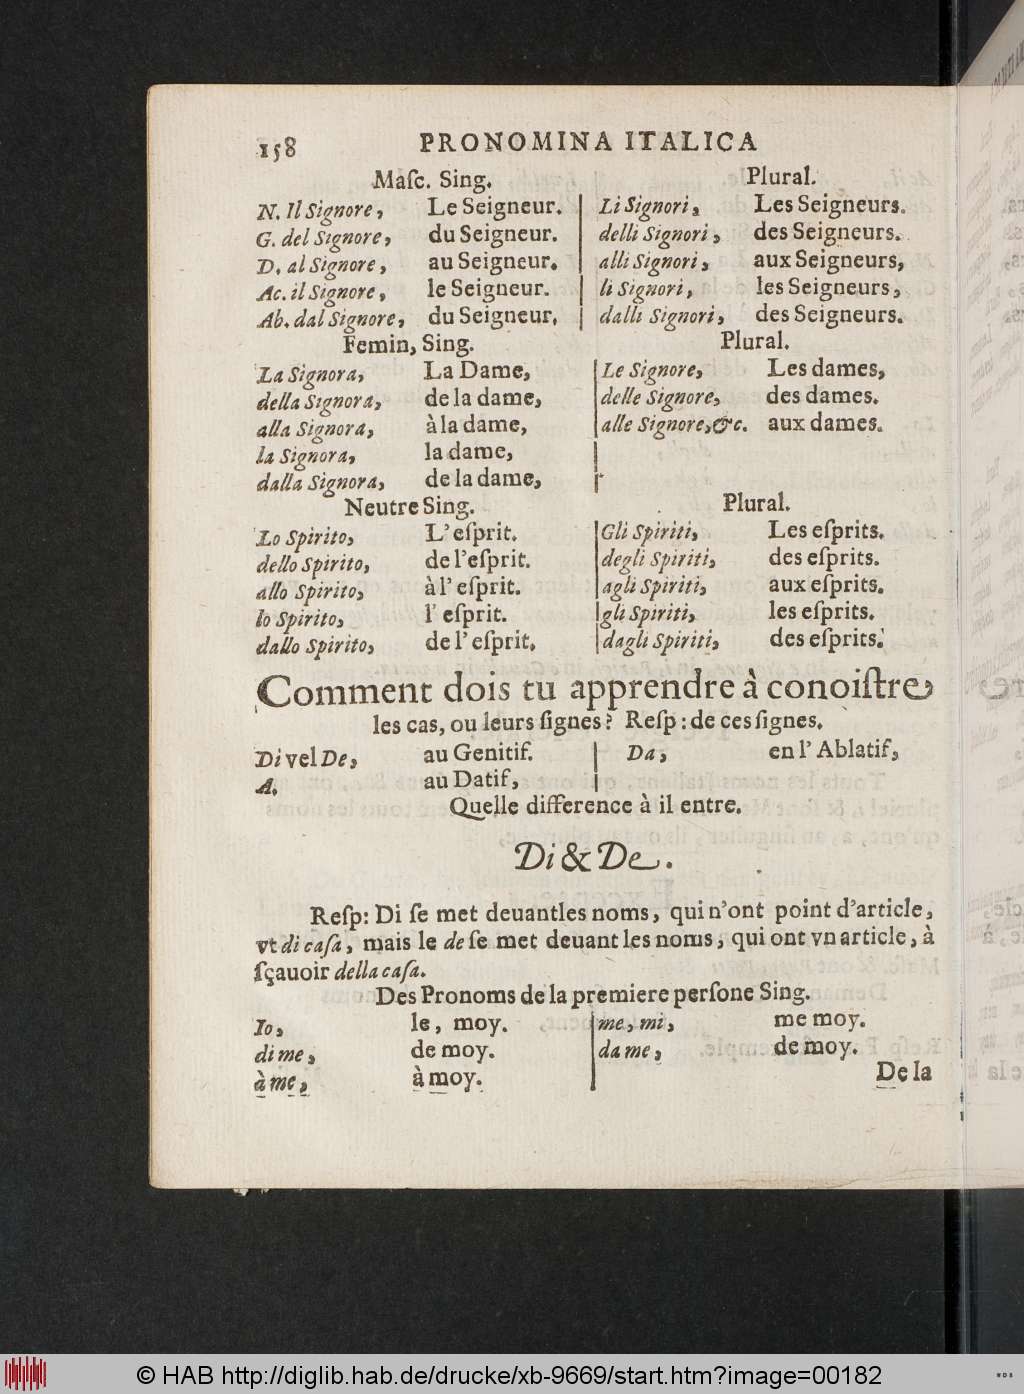 158 PRONOMINA ITALICA
Maſc. Sing. Plural.
N. Il Signore, Le Seigneur. Li Signori, Les Seigneurs.
G. del Signore, du Seigneur. delli Signori, des Seigneurs.
D. al Signore, au Seigneur. alli Signori, aux Seigneurs,
Ac. il Signore, le Seigneur. li Signori, les Seigneurs,
Ab. dal Signore, du Seigneur. dalli Signori, des Seigneurs.
Femin, Sing. Plural.
La Signora, La Dame, Le Signore, Les dames,
della Signora, de la dame, delle Signore, des dames.
alla Signora, à la dame, alle Signore, &c. aux dames.
la Signora, la dame,
dalla Signora, de la dame,
Neutre Sing. Plural.
Lo Spirito, L'eſprit. Gli Spiriti, Les eſprits.
dello Spirito, de l'eſprit. degli Spiriti, des eſprits.
allo Spirito, à l'eſprit. agli Spiriti, aux eſprits.
lo Spirito, l'eſprit. gli Spiriti, les eſprits.
dallo Spirito, de l'eſprit, dagli Spiriti, des eſprits.
Comment dois tu apprendre à conoiſtre
les cas, ou leurs ſignes? Reſp: de ces ſignes.
Di vel De, au Genitif. Da, en l'Ablatif,
A. au Datif,
Quelle difference à il entre.
Di & De.
Reſp: Di ſe met deuant les noms, qui n'ont point d'article,
vt di caſa, mais le de ſe met deuant les noms, qui ont vn article, à
ſçauoir della caſa.
Des Pronoms de la premiere perſone Sing.
Io, le, moy. me, mi, me moy.
di me, de moy. da me, de moy.
à me, à moy.
De la
© HAB http://diglib.hab.de/drucke/xb-9669/start.htm?image=00182